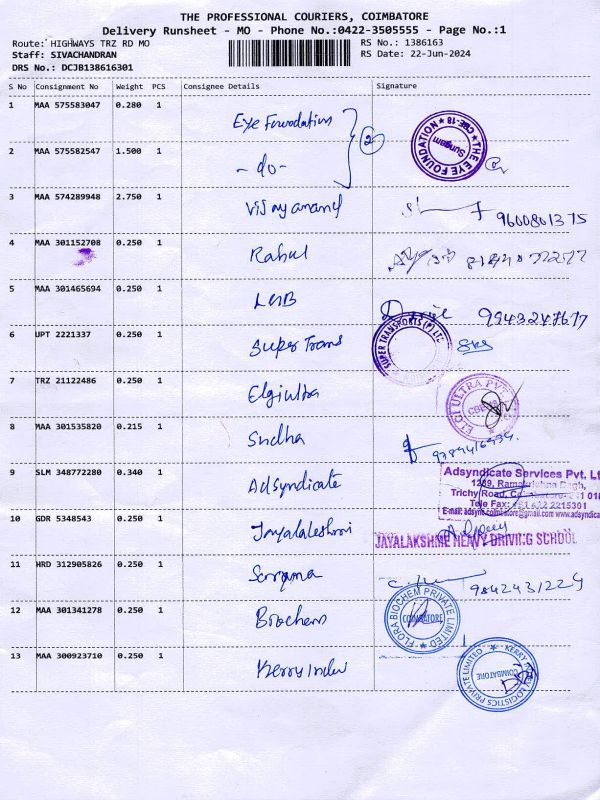 THE PROFESSIONAL COURIERS, COIMBATORE
Delivery Runsheet - MO - Phone No.:0422-3505555 - Page No.:1
Route: HIGHWAYS TRZ RD MO RS No.: 1386163
Staff: SIVACHANDRAN RS Date: 22-Jun-2024
DRS No.: DCJB138616301
S No Consignment No Weight PCS Consignee Details Signature
1 MAA 575583047 0.280 1 Eye Foundation
THE EYE FOUNDATION CBE-18 Sungam
2 MAA 575582547 1.500 1 - do - 2
3 MAA 574289948 2.750 1 Vijayanand 9600801375
4 MAA 301152708 0.250 1 Rahul
5 MAA 301465694 0.250 1 9943247677
6 UPT 2221337 0.250 1 Super Trans
SUPER TRANSPORTS (P) LTD
7 TRZ 21122486 0.250 1 Elgiultra
ELGI ULTRA PVT
8 MAA 301535820 0.215 1 Sudha
9 SLM 348772280 0.340 1 Adsyndicate
Adsyndicate Services Pvt. Lt
1289, Ramakrishna Bagh,
Trichy Road, Coimbatore-641 018
Tele Fax: +91 422 2215301
E-mail: adsynt.coimbatore@gmail.com www.adsyndica
10 GDR 5348543 0.250 1 Jayalakshmi
JAYALAKSHME HEAVY DRIVING SCHOOL
11 HRD 312905826 0.250 1 9842431224
12 MAA 301341278 0.250 1 Biochem
FLORA BIOCHEM PRIVATE LIMITED COIMBATORE
13 MAA 300923710 0.250 1 Kerry Indev
KERRY INDEV LOGISTICS PRIVATE LIMITED COIMBATORE